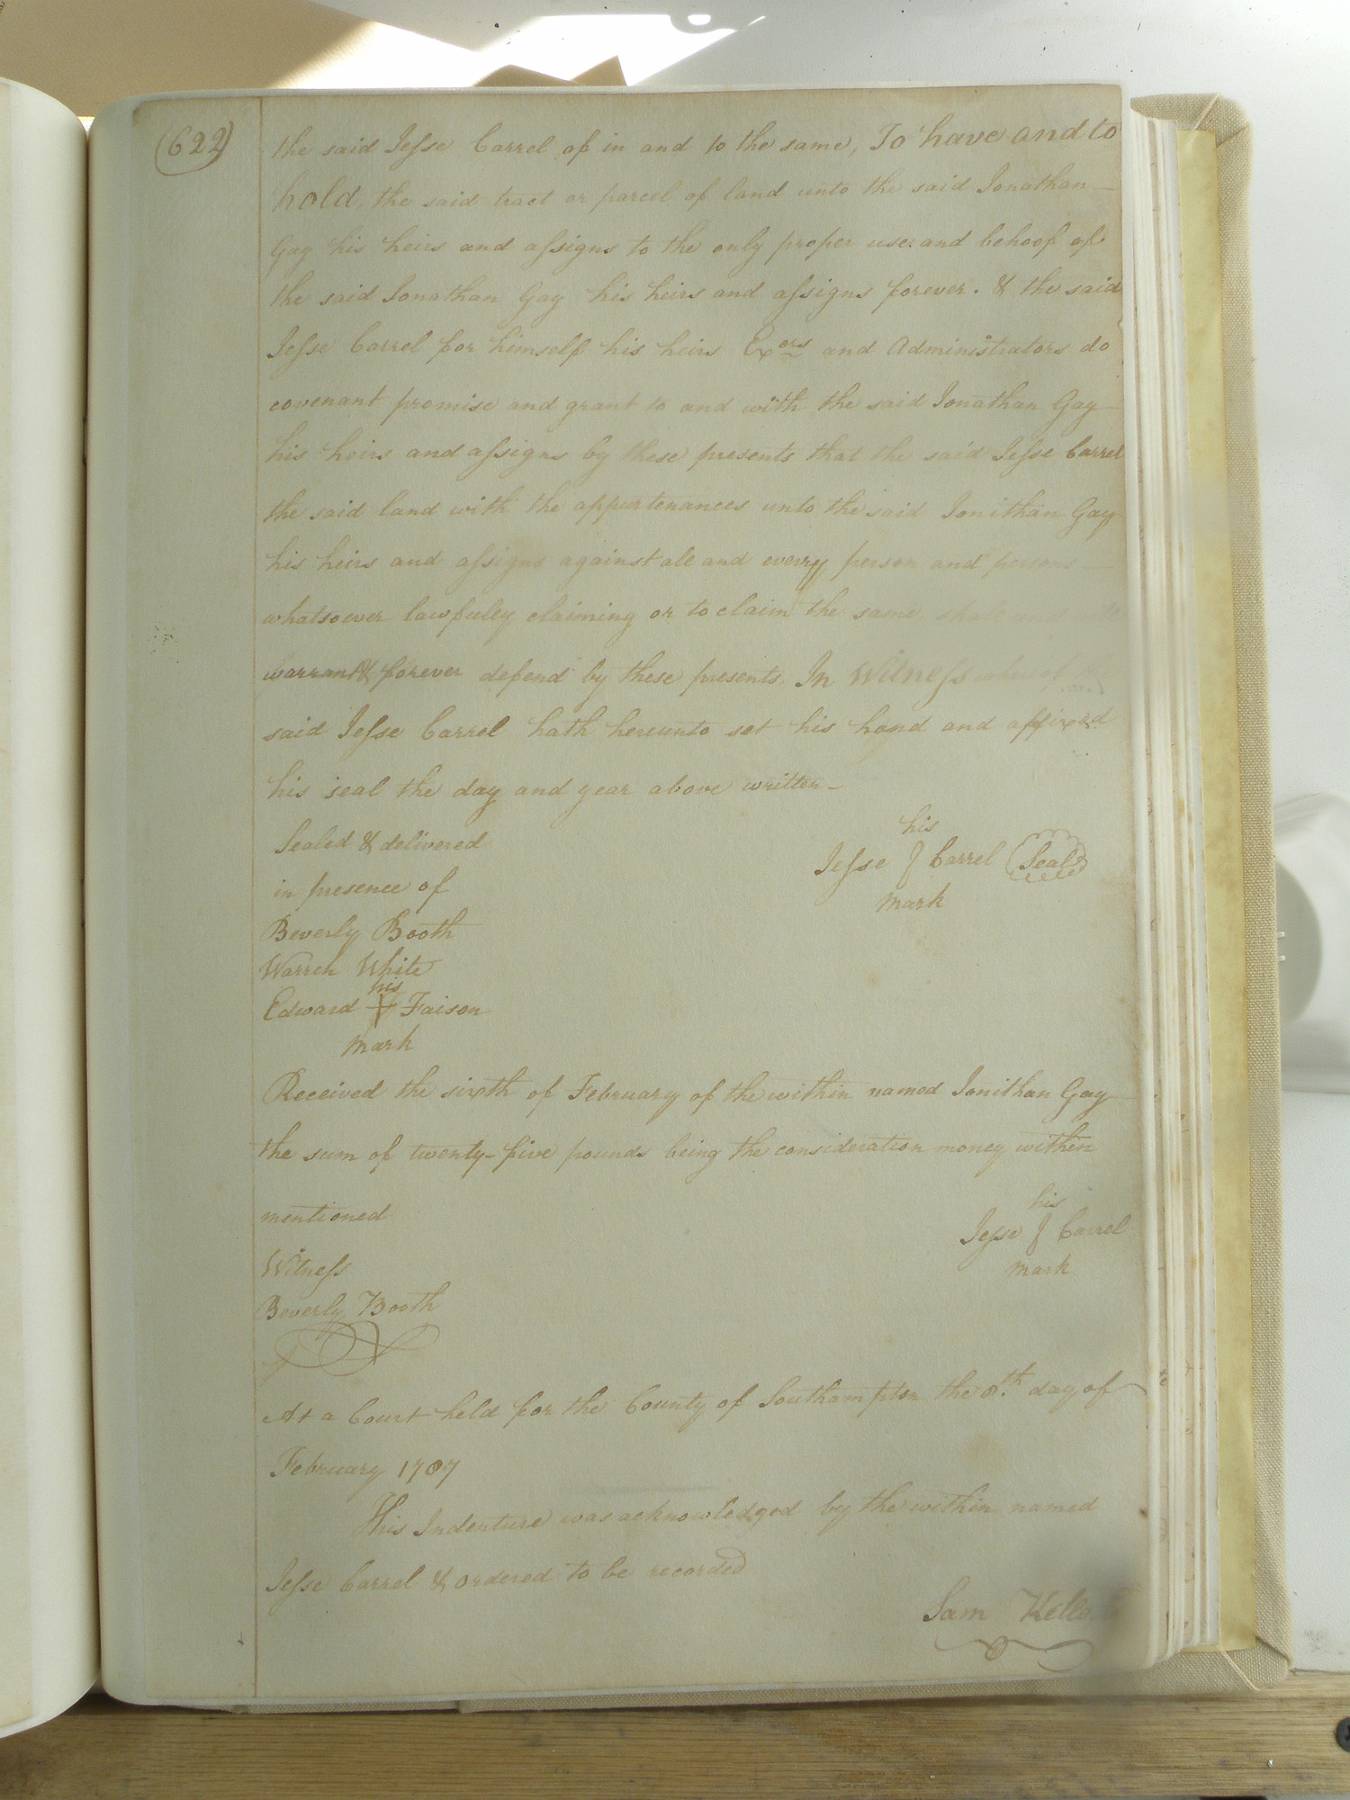 (622)
the said Jesse Carrel of in and to the same, To have and to
hold the said tract or parcel of land unto the said Jonathan
Gay his heirs and assigns to the only proper use and behoof of
the said Jonathan Gay his heirs and assigns forever. & the said
Jesse Carrel for himself his heirs Exors and Administrators do
covenant promise and grant to and with the said Jonathan Gay
his heirs and assigns by these presents that the said Jesse Carrel
the said land with the appurtenances unto the said Jonithan Gay
his heirs and assigns against all and every person and persons
whatsoever lawfully claiming or to claim the same shall and
warrant & forever defend by these presents. In Witness whereof the
said Jesse Carrel hath hereunto set his hand and affixed
his seal the day and year above written-
Sealed & delivered
in presence of
his
Jesse J Carrel Seal
mark
Beverly Booth
Warren White
his
Edward + Faison
mark
Received the sixth of February of the within named Jonithan Gay
the sum of twenty-five pounds being the consideration money within
mentioned
his
Jesse J Carrel
mark
Witness
Beverly Booth
At a Court held for the County of Southampton the 8th day of
February 1787
This Indenture was acknowledged by the within named
Jesse Carrel & ordered to be recorded
Sam Kello